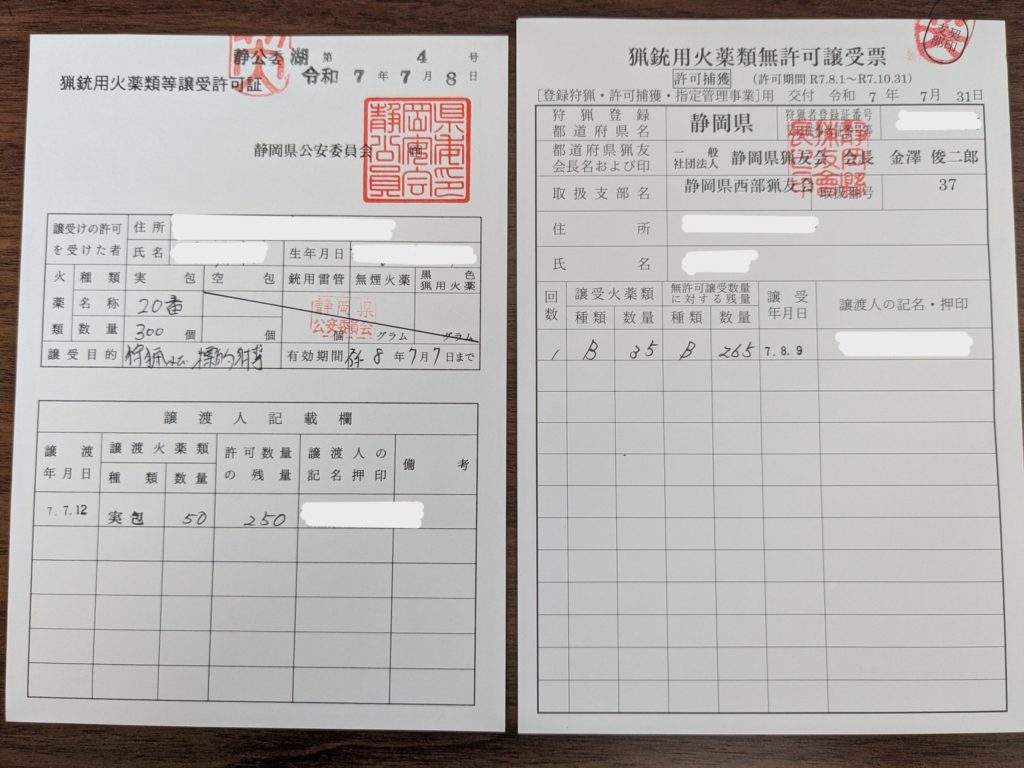 静公委 湖 第 4 号
令和 7 年 7 月 8 日
猟銃用火薬類等譲受許可証
静岡県公安委員会
静岡県公安委員会
譲受けの許可を受けた者
住所
氏名 生年月日
火薬類 種類 実包 空包 銃用雷管 無煙火薬 黒色猟用火薬
名称 20番
静岡県
公安委員会
数量 300 個 個 個 グラム グラム
譲受目的 標的射撃 有効期間 8 年 7 月 7 日まで
譲渡人記載欄
譲渡年月日 譲渡火薬類 許可数量の残量 譲渡人の記名押印 備考
種類 数量
7.7.12 実包 50 250
契印
猟銃用火薬類無許可譲受票
許可捕獲 (許可期間 R7.8.1～R7.10.31)
[登録狩猟・許可捕獲・指定管理事業]用 交付 令和 7 年 7月 31日
狩猟登録都道府県名 静岡県 狩猟者登録証番号
都道府県猟友会長名および印 一般社団法人 静岡県猟友会 会長 金澤 俊二郎
取扱支部名 静岡県西部猟友会 取扱番号 37
住所
氏名
回数 譲受火薬類 無許可譲受数量に対する残量 譲受年月日 譲渡人の記名・押印
種類 数量 種類 数量
1 B 35 B 265 7.8.9